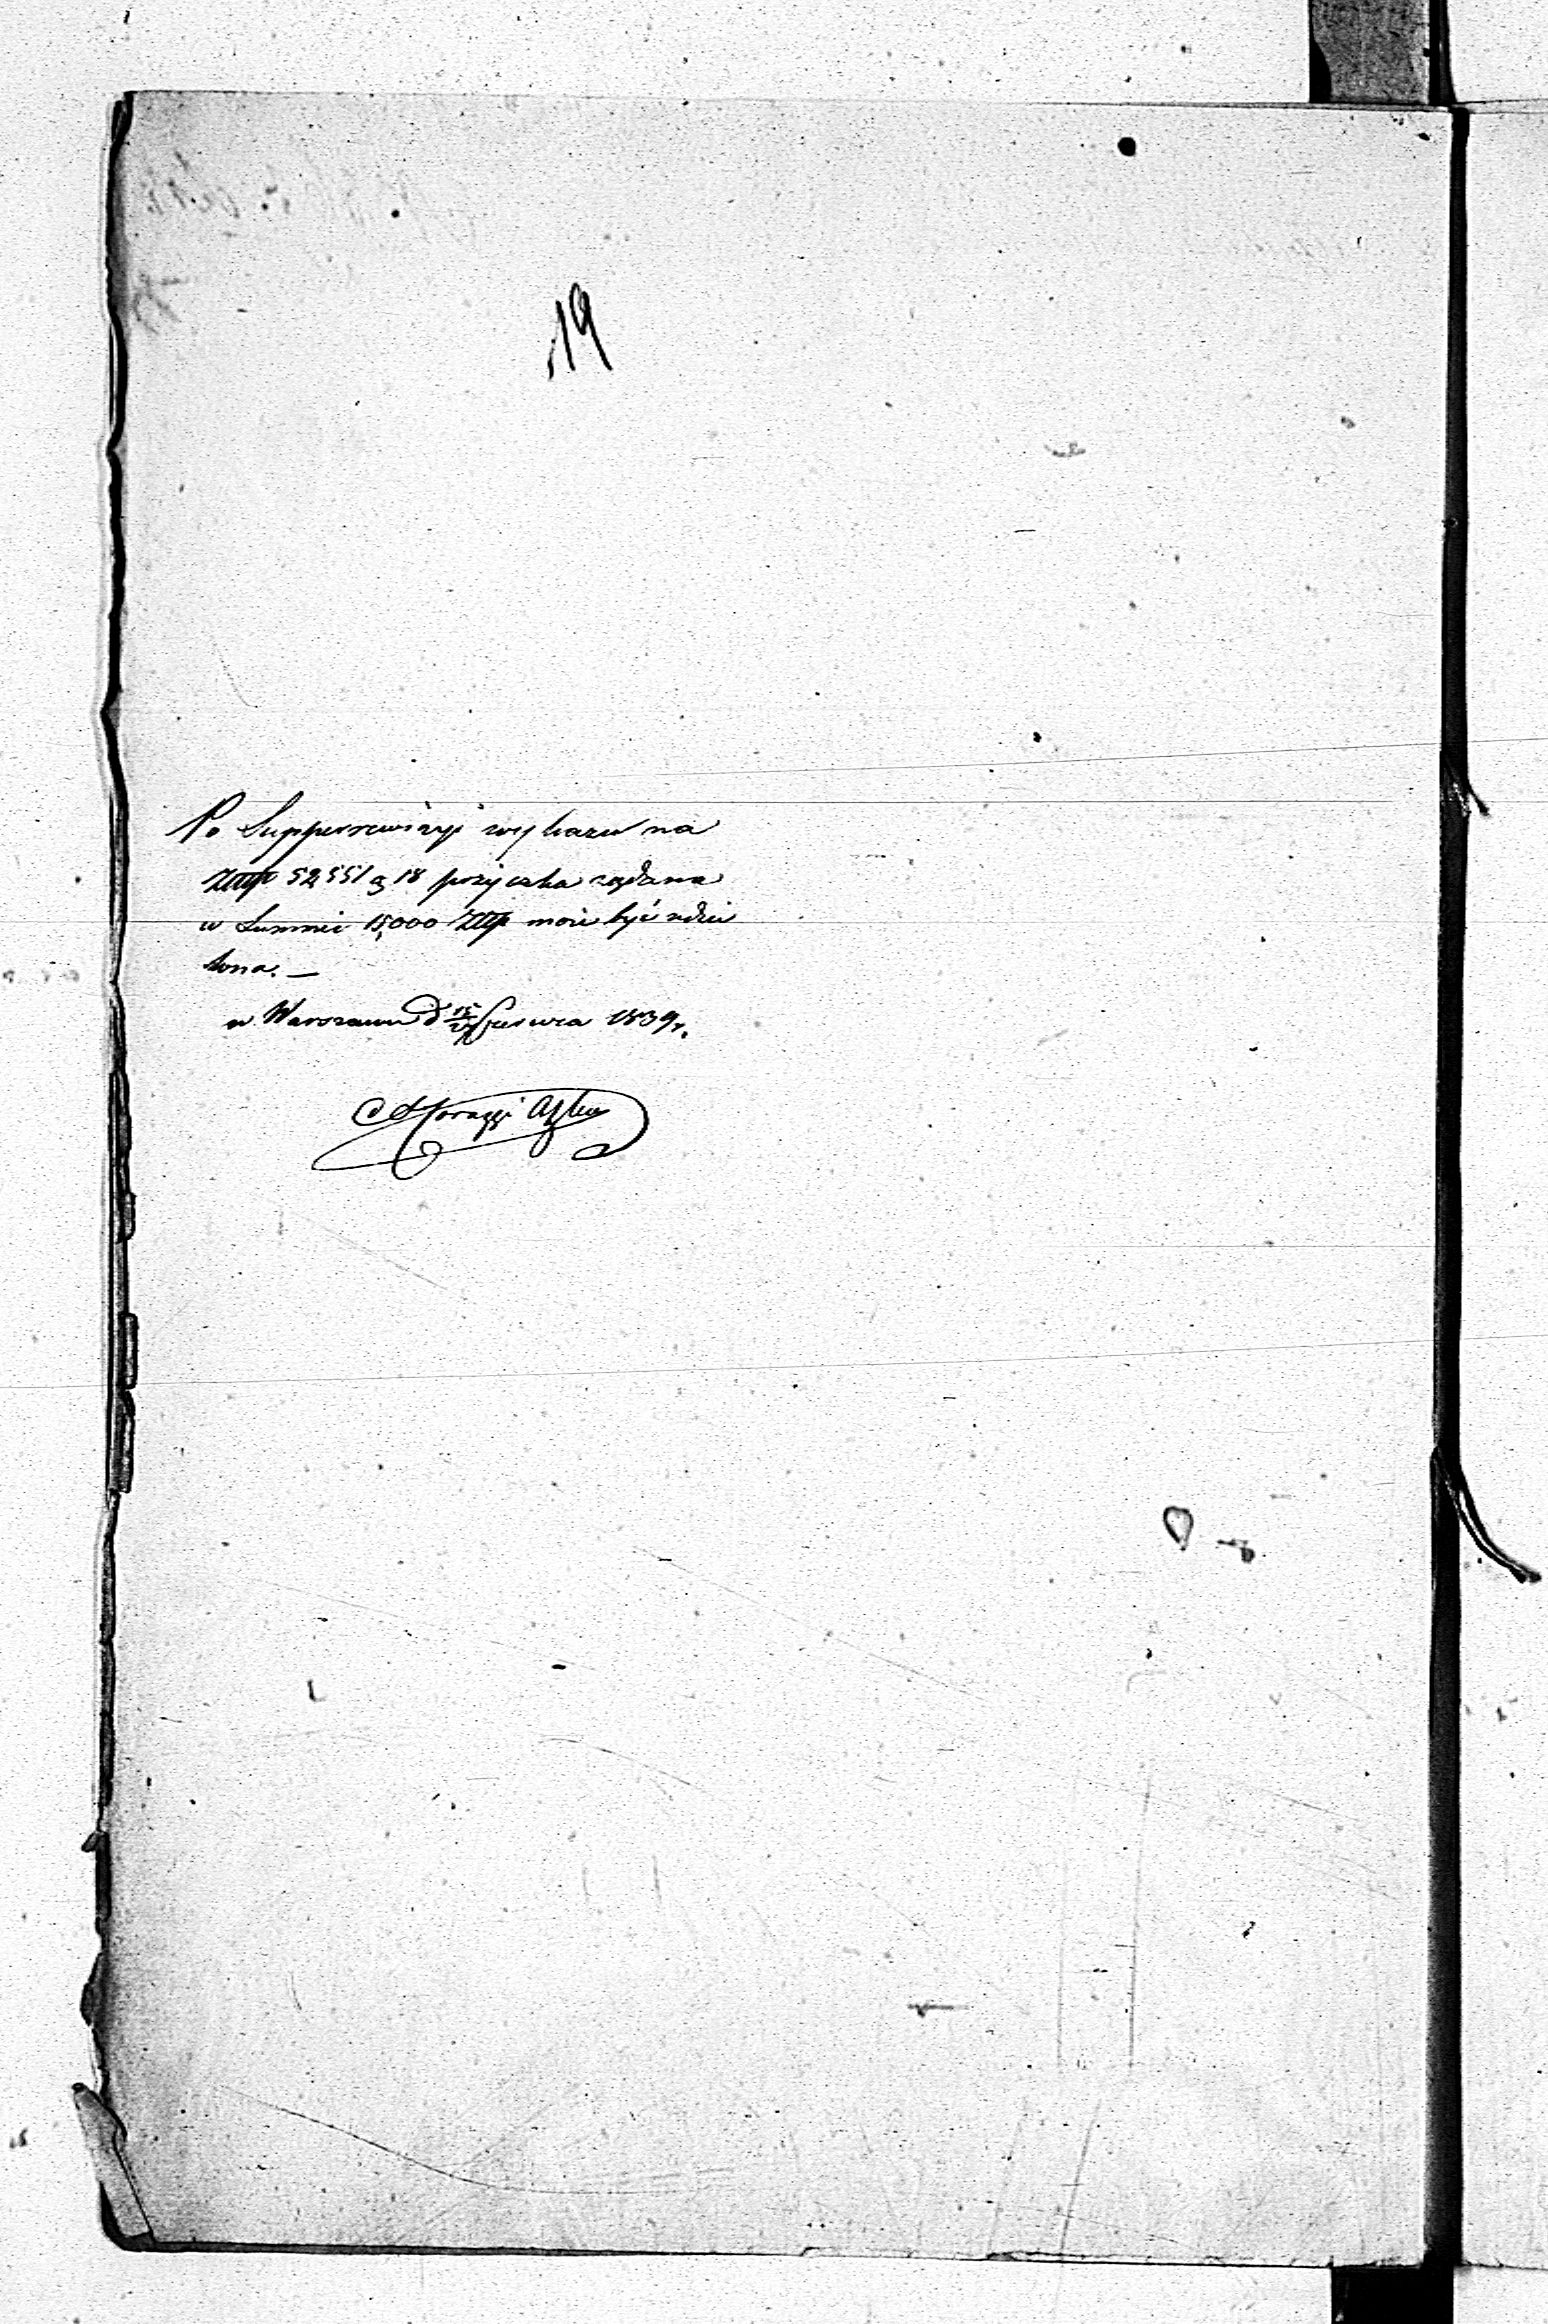 19
Po Supperrewizyi wykazu na
Złtp 52,551 g 18 pożyczka rządana
w Summie 15,000 Złtp może być udzie
lona. —
w Warszawie d 15/27 Czerwca 1839 r.
Corazzi